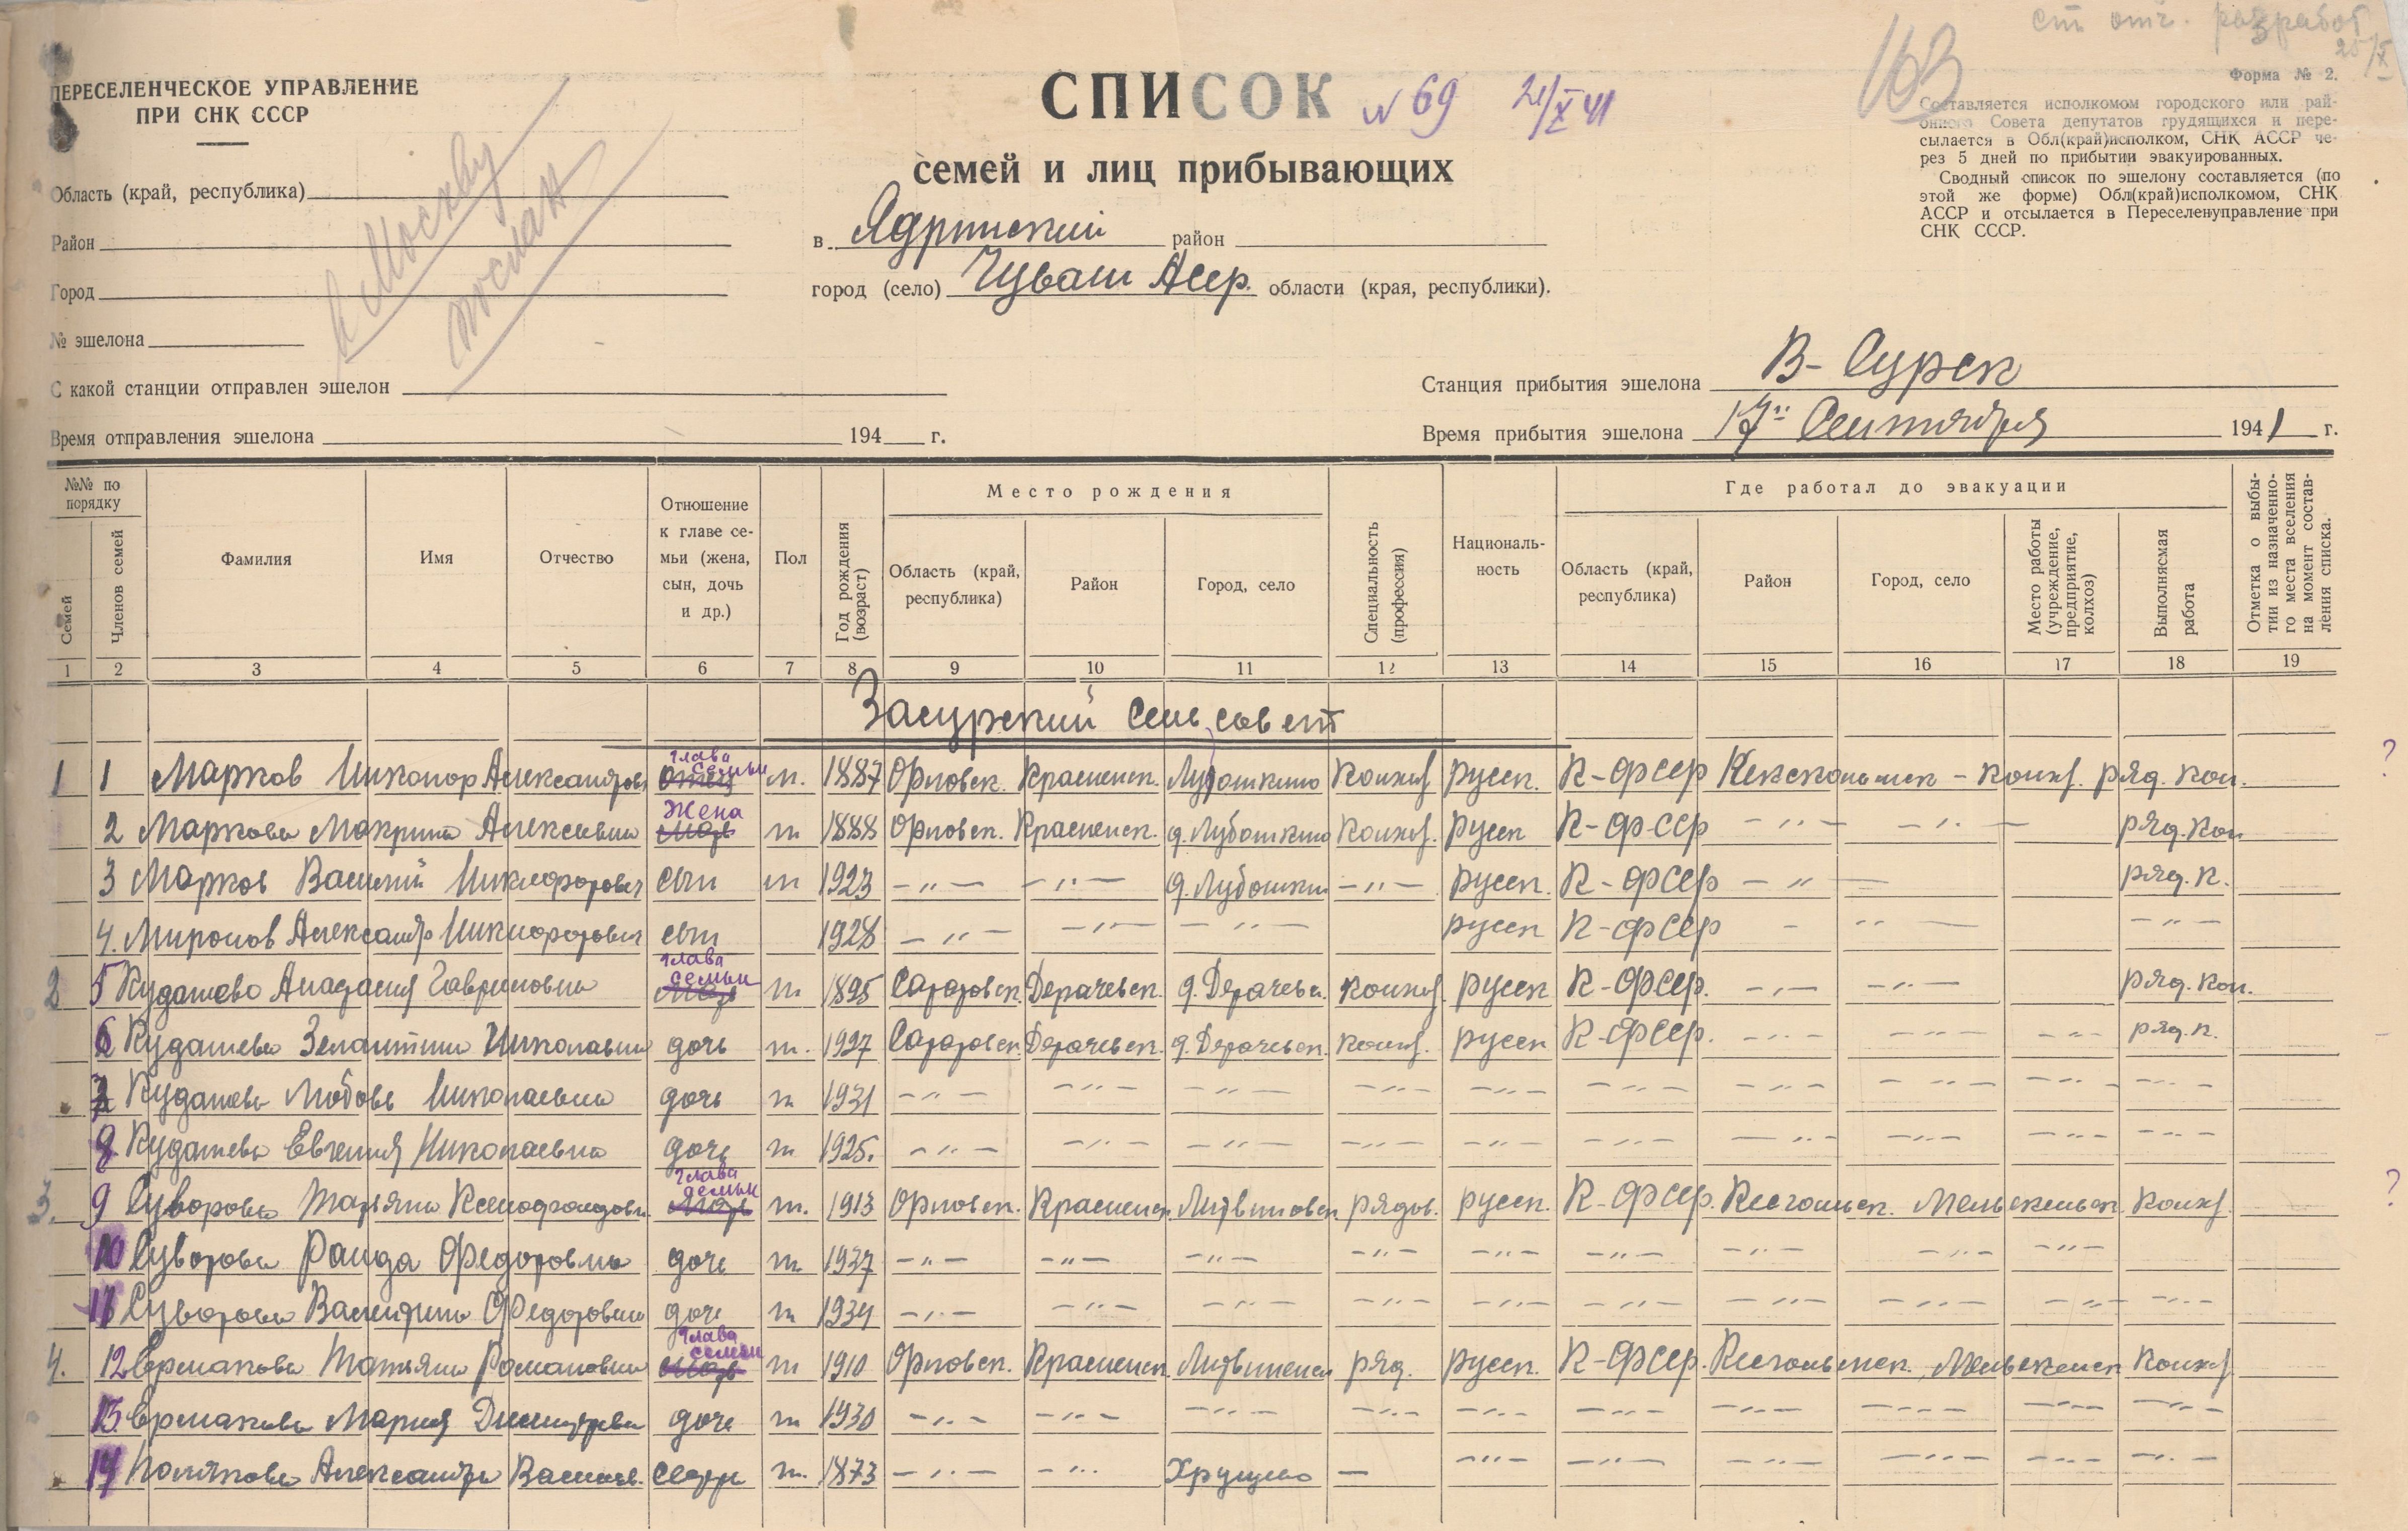 ст. отч. разработ
25/X
163
ПЕРЕСЕЛЕНЧЕСКОЕ УПРАВЛЕНИЕ
ПРИ СНК СССР
СПИСОК № 69 21/X 41
семей и лиц прибывающих
Форма № 2.
Составляется исполкомом городского или рай-
онного Совета депутатов трудящихся и пере-
сылается в Обл(край)исполком, СНК АССР че-
рез 5 дней по прибытии эвакуированных.
Сводный список по эшелону составляется (по
этой же форме) Обл(край)исполкомом, СНК
АССР и отсылается в Переселенуправление при
СНК СССР.
в Ядринский район
город (село) Чуваш Асср. области (края, республики).
Область (край, республика)
Район
Город
№ эшелона
С какой станции отправлен эшелон
Время отправления эшелона 194 г.
в Москву
послан
Станция прибытия эшелона В-Сурск
Время прибытия эшелона 17го Сентября 1941 г.
№№ по порядку
Семей
Членов семей
Фамилия
Имя
Отчество
Отношение к главе се-
мьи (жена, сын, дочь и др.)
Пол
Год рождения (возраст)
Место рождения
Область (край, республика)
Район
Город, село
Специальность (профессия)
Националь-
ность
Где работал до эвакуации
Область (край, республика)
Район
Город, село
Место работы (учреждение, предприятие, колхоз)
Выполняемая работа
Отметка о выбы-
тии из назначенно-
го места вселения
на момент состав-
ления списка.
1 2 3 4 5 6 7 8 9 10 11 12 13 14 15 16 17 18 19
Засурский сельсовет
1 1 Марков Никонор Александров глава семьи м. 1887 Орловск. Краснен. Лубошкино Колхоз русск. К-фсср колхоз. ряд. кол. ?
2 Маркова Макрина Алексевна Жена ж 1888 Орловск. Красненск. д. Лубошкино Колхоз. русск К-фсср -"- -"- ряд. кол
3 Марков Василий Никифорович сын м 1923 -"- -"- д. Лубошкин -"- русск. К-фсср -"- ряд. к.
4. Миронов Александр Никифорович сын 1928 -"- -"- -"- русск К-фсср -"- -"-
2 5 Кудашева Анастасия Гавриловна глава семьи ж. 1895 колхоз русск К-фсср. -"- -"- ряд. кол.
6 Кудашева Николаевна дочь ж. 1927 колхоз. русск К-фсср. -"- -"- -"- ряд. к.
7 Кудашева Любовь Николаевна дочь ж 1931 -"- -"- -"- -"- -"- -"- -"- -"- -"- -"-
8 Кудашева Евгения Николаевна дочь ж 1925. -"- -"- -"- -"- -"- -"- -"- -"- -"- -"-
3. 9 Суворова Татьяна Ксенофонтовн. глава семьи ж. 1913 Орловск. Красненск. Литвиновск рядов. русск. К-фсср. Колхоз. ?
10 Суворова Раида Федоровна дочь ж 1937 -"- -"- -"- -"- -"- -"- -"- -"- -"-
11 Суворова Валентина Федоровна дочь ж 1934 -"- -"- -"- -"- -"- -"- -"- -"- -"- -"-
4. 12 Ермакова Татьяна Романовна глава семьи ж 1910 Орловск. Красненск. ряд. русск. К-фсср. Колхоз
13. Ермакова Мария Дмитриевна дочь ж 1930 -"- -"- -"- -"- -"- -"- -"- -"- -"- -"-
14 Полякова Александра Василь. ж. 1873 -"- -"- Хрущево - -"- -"- -"- -"- -"- -"-